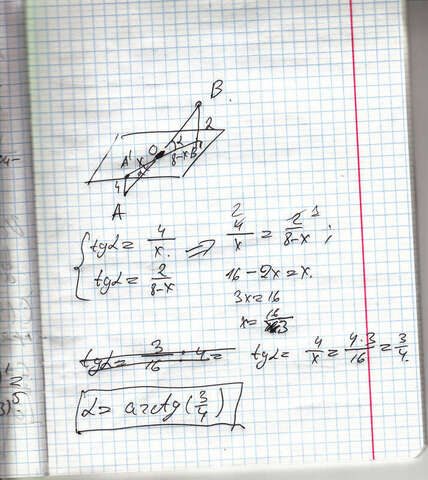 B
2
O 2
A' x 8-x B'
4 α
A
tgα = 4/x. ⇒ 4/x = 2/8-x ;
tgα = 2/8-x 16-2x=x.
3x=16
x=16/3
tgα= 3/16 · 4 = tgα= 4/x = 4·3/16 = 3/4.
α= arctg(3/4)